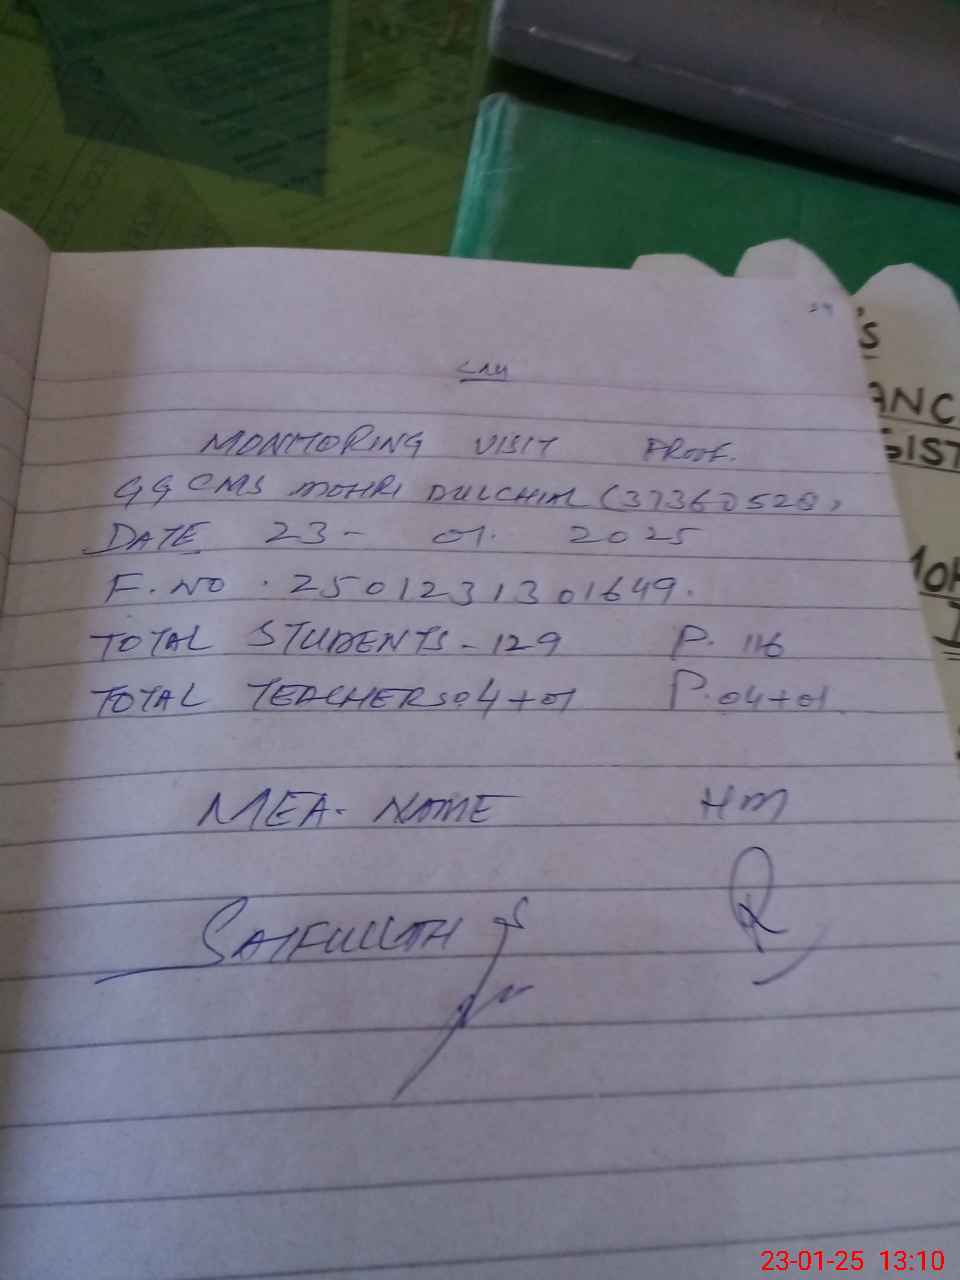 'S
ANC
GIST
MONITORING VISIT PROOF.
GGCMS MOHRI DULCHIAL (37360528)
DATE 23- 01. 2025
F.NO . 2501231301649.
TOTAL STUDENTS - 129 P. 116
TOTAL TEACHERS 04+01 P. 04+01
MEA. NAME HM
SAIFULLAH
MOH
23-01-25 13:10